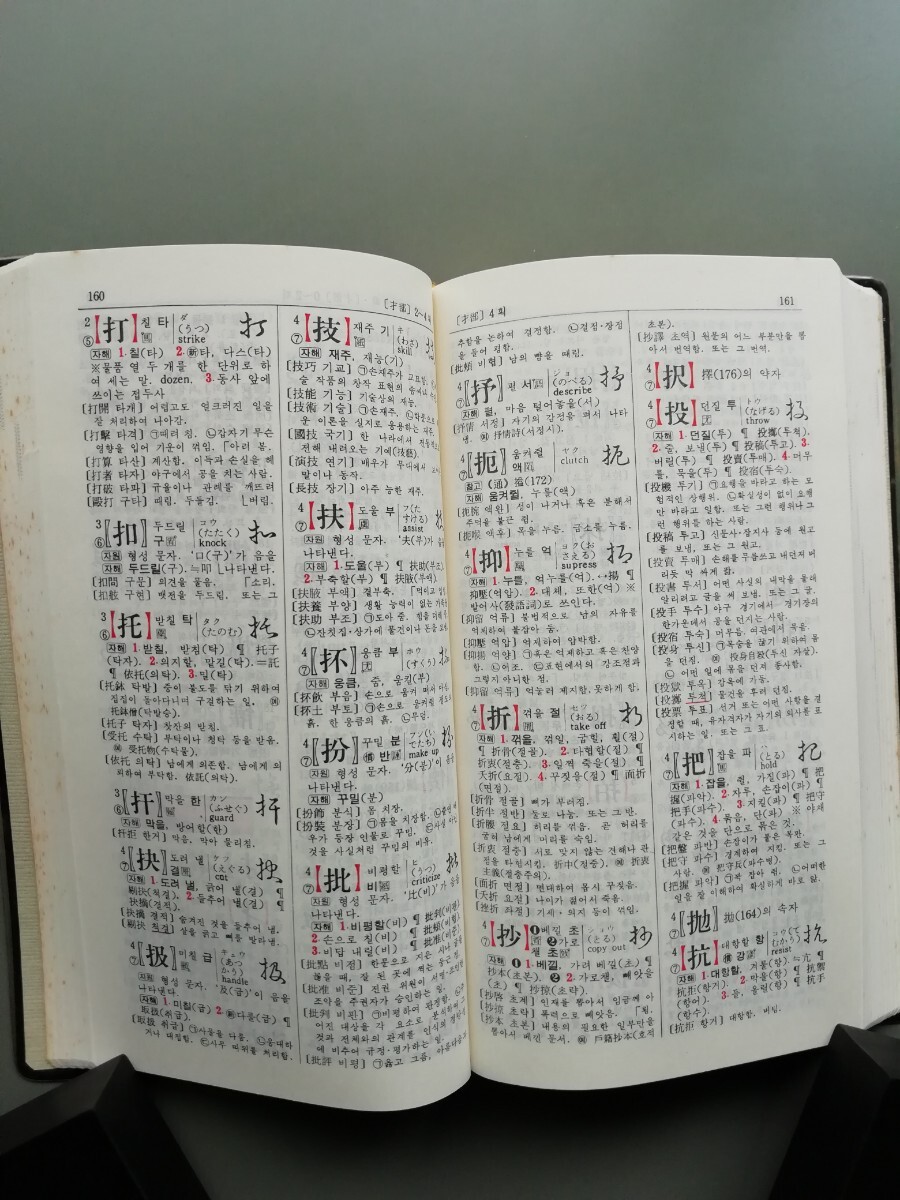 160
[才部] 2~4획
2 ⑤ 【打】 칠 타 ダ (うつ) strike 打
자해 1.칠(타) 2.新타, 다스(타)
※물품 열 두 개를 한 단위로 하
여 세는 말. dozen. 3.동사 앞에
쓰이는 접두사
[打開 타개] 어렵고도 얼크러진 일을
잘 처리하여 나아감.
[打擊 타격] ㉠때려 침. ㉡갑자기 무슨
영향을 입어 기운이 꺾임. 「아려 봄.
[打算 타산] 계산함. 이득과 손실을 헤
[打者 타자] 야구에서 공을 치는 사람.
[打破 타파] 규율이나 관례를 깨뜨려
[毆打 구타] 때림. 두들김. 」버림.
3 ⑥ 〖扣〗 두드릴 구 コウ (たたく) knock 扣
자원 형성 문자. '口(구)'가 음을
나타낸다.
자해 두드릴(구). ≒叩
[扣問 구문] 의견을 물음. 「소리.
[扣舷 구현] 뱃전을 두드림. 또는 그
3 ⑥ 〖托〗 받칠 탁 タク (たのむ) 托
자해 1.받칠, 받침(탁) ¶ 托子
(탁자). 2.의지할, 맡길(탁). =託
¶ 依托(의탁). 3.밀(탁)
[托鉢 탁발] 중이 불도를 닦기 위하여
집집이 돌아다니며 구걸하는 일. ㊟
托鉢僧(탁발승).
[托子 탁자] 찻잔의 받침.
[受托 수탁] 부탁이나 청탁 등을 받음.
㊟ 受托物(수탁물).
[依托 의탁] 남에게 의존함. 남에게 의
뢰하여 부탁함. 依託(의탁).
3 ⑥ 〖扞〗 막을 한 カン (ふせぐ) guard 扞
자해 막을, 방어할(한)
[扞拒 한거] 막음. 막아 물리침.
4 ⑦ 〖抉〗 도려 낼 결 ケツ (えぐる) cut 抉
자해 1.도려 낼, 긁어 낼(결) ¶
剔抉(척결). 2.들추어 낼(결) ¶
抉摘(결적).
[抉摘 결적] 숨겨진 것을 들추어 냄.
[剔抉 척결] 살을 긁고 뼈를 발라냄.
4 ⑦ 〖扱〗 미칠 급 キュウ (あつかう) handle 扱
자원 형성 문자. '及(급)'이 음을
나타낸다.
자해 1.미칠(급) 2.新다룰(급) ¶
取扱(취급).
[取扱 취급] ㉠사물을 다룸. ㉡응대하
거나 대접함. ㉢사무 따위를 처리함.
4 ⑦ 【技】 재주 기 ギ (わざ) skill
자해 재주, 재능(기)
[技巧 기교] ㉠손재주가 교묘함.
술 작품의 창작 표현의 솜씨나
[技能 기능] 기술상의 재능.
[技術 기술] ㉠손재주. ㉡학문으로
운 이론을 실지로 응용하는 재주.
[國技 국기] 한 나라에서 전통적으로
전해 내려오는 기예(技藝).
[演技 연기] 배우가 무대에서
말이나 동작.
[長技 장기] 아주 능한 재주.
4 ⑦ 【扶】 도울 부 フ(たすける) assist
자원 형성 문자. '夫(부)'가 음을
나타낸다.
자해 1.도울(부) ¶ 扶助(부조)
2.부축할(부) ¶ 扶腋(부액)
[扶腋 부액] 곁부축. 「먹이고
[扶養 부양] 생활 능력이 없는
[扶助 부조] ㉠도와 줌. 힘을
㉡잔칫집·상가에 물건이나 돈을
4 ⑦ 〖抔〗 움큼 부 ホウ (すくう)
자해 움큼, 줌, 움킬(부)
[抔飮 부음] 손으로 움켜 떠서 마심
[抔土 부토] ㉠손으로 움켜쥔
흙. 한 움큼의 흙. ㉡무덤.
4 ⑦ 〖扮〗 꾸밀 분 慣반 フン(いでたち) make up
자원 형성 문자. '分(분)'이 음을
나타낸다.
자해 꾸밀(분)
[扮飾 분식] 몸 치장.
[扮裝 분장] ㉠몸을 치장함.
우가 등장 인물로 꾸밈.
것을 사실처럼 꾸밈의 비유.
4 ⑦ 【批】 비평할 비 ヒ (うつ) criticize 批
자원 형성 문자. '比(비)'가 음을
나타낸다.
자해 1.비평할(비) ¶ 批判(비평)
2.손으로 칠(비) ¶ 批頰(비협)
3.비답 내릴(비) ¶ 批准(비준)
[批點 비점] 한문으로 지은 시나 글을
볼 때, 잘 된 곳에 찍는 둥근 점.
[批准 비준] 전권 위원이 서명·조인한
조약을 주권자가 승인하는 일.
[批判 비판] ㉠비평하여 판정함.
어진 대상을 각 요소로 분석하여 그
것과 전체와의 관계를 인식의
에 비추어 규정·평가하는 일.
[批評 비평] ㉠옳고 그름, 아름다움과
[才部] 4획
161
추함을 논하여 결정함. ㉡결점·장점
을 들어 집함.
[批頰 비협] 남의 뺨을 때림.
4 ⑦ 〖抒〗 펼 서 ジョ (のべる) describe 抒
자해 펼, 마음 털어놓을(서)
[抒情 서정] 자기의 감정을 펴서 나타
냄. ㊟ 抒情詩(서정시).
4 ⑦ 〖扼〗 움켜쥘 액 ヤク clutch 扼
참고 (通) 搤(172)
자해 움켜쥘, 누를(액)
[扼腕 액완] 성이 나거나 혹은 분해서
주먹을 불끈 쥠.
[扼喉 액후] 목을 누름. 급소를 누름.
4 ⑦ 【抑】 누를 억 ヨク(おさえる) supress 抑
자해 1.누를, 억누를(억). ↔揚 ¶
抑壓(억압). 2.대체, 또한(억) ※
발어사(發語詞)로 쓰인다.
[抑留 억류] 불법적으로 남의 자유를
억제하여 붙잡아 둠.
[抑壓 억압] 억제하여 압박함.
[抑揚 억양] ㉠혹은 억제하고 혹은 찬양
함. ㉡어조. ㉢표현에서의 강조점과
그렇지 아니한 점.
[抑留 억류] 억눌러 제지함. 못하게 함.
4 ⑦ 【折】 꺾을 절 セツ (おる) take off 折
자해 1.꺾을, 꺾일, 굽힐, 휠(절)
¶ 折骨(절골). 2.타협할(절) ¶
折衷(절충). 3.일찍 죽을(절) ¶
夭折(요절). 4.꾸짖을(절) ¶ 面折
(면절).
[折骨 절골] 뼈가 부러짐.
[折半 절반] 둘로 나눔. 또는 그 반.
[折腰 절요] 허리를 꺾음. 곧 허리를
굽혀 남에게 머리를 숙임.
[折衷 절충] 서로 맞지 않는 견해나 관
점을 타협시킴. 折中(절중). ㊟ 折衷
主義(절충주의).
[面折 면절] 면대하여 몹시 꾸짖음.
[夭折 요절] 나이가 젊어서 죽음.
[挫折 좌절] 기세·의지 등이 꺾임.
4 ⑦ 【抄】 ❶베낄 초 ❷가로챌 초 ショウ (とる) copy out 抄
자해 ❶1.베낄, 가려 베낄(초) ¶
抄本(초본). ❷2.가로챌, 빼앗을
(초) ¶ 抄掠(초략).
[抄啓 초계] 인재를 뽑아서 임금에 아
[抄掠 초략] 폭력으로 빼앗음. 「룀.
[抄本 초본] 내용의 필요한 일부만을
뽑아서 베낀 문서. ㊟ 戶籍抄本(호적
초본).
[抄譯 초역] 원문의 어느 부분만을 뽑
아서 번역함. 또는 그 번역.
4 ⑦ 〖択〗 擇(176)의 약자
4 ⑦ 【投】 던질 투 トウ (なげる) throw 投
자해 1.던질(투) ¶ 投擲(투척).
2.줄, 보낼(투) ¶ 投稿(투고). 3.
버릴(투) ¶ 投賣(투매). 4.머무
를, 묵을(투) ¶ 投宿(투숙).
[投機 투기] ㉠요행을 바라고 하는 모
험적인 상행위. ㉡확실성이 없이 요행
만 바라고 일함. 또는 그런 행위나 그
런 행위를 하는 사람.
[投稿 투고] 신문사·잡지사 등에 원고
를 보냄. 또는 그 원고.
[投賣 투매] 손해를 무릅쓰고 내던져 버
려듯 막 싸게 팖.
[投書 투서] 어떤 사실의 내막을 몰래
알리려고 글을 써 보냄. 또는 그 글.
[投手 투수] 야구 경기에서 경기장의
한가운데서 공을 던지는 사람.
[投宿 투숙] 머무름. 여관에서 묵음.
[投身 투신] ㉠목숨을 끊기 위하여 몸
을 던짐. ㊟ 投身自殺(투신 자살).
㉡ 어떤 일에 몸을 던져 종사함.
[投獄 투옥] 감옥에 가둠.
[投擲 투척] 물건을 후려 던짐.
[投票 투표] 선거 또는 어떤 사항을 결
정할 때, 유자격자가 자기의 의사를 표
시하는 일. 또는 그 표.
4 ⑦ 【把】 잡을 파 ハ (とる) hold 把
자해 1.잡을, 쥘, 가질(파) ¶ 把
握(파악). 2.자루, 손잡이(파) ¶
把手(파수). 3.지킬(파) ¶ 把守
(파수). 4.묶음, 단(파) ※ 야채
같은 것을 단으로 묶은 것.
[把盤 파반] 손잡이가 붙은 목판.
[把守 파수] 경계하여 지킴. 또는 그
사람. ㊟ 把守兵(파수병).
[把握 파악] ㉠꽉 잡아 쥠. ㉡어떠한
일을 잘 이해하여 확실하게 바로 앎.
4 ⑦ 〖抛〗 拋(164)의 속자
4 ⑦ 【抗】 대항할 항 慣강 コウ(てむかう) resist 抗
자해 1.대항할, 겨룰(항). =亢 ¶
抗拒(항거). 2.막을(항) ¶ 抗禦
(항어). 3.들, 올릴(항) ¶ 抗手
(항수).
[抗拒 항거] 대항함. 버팀.